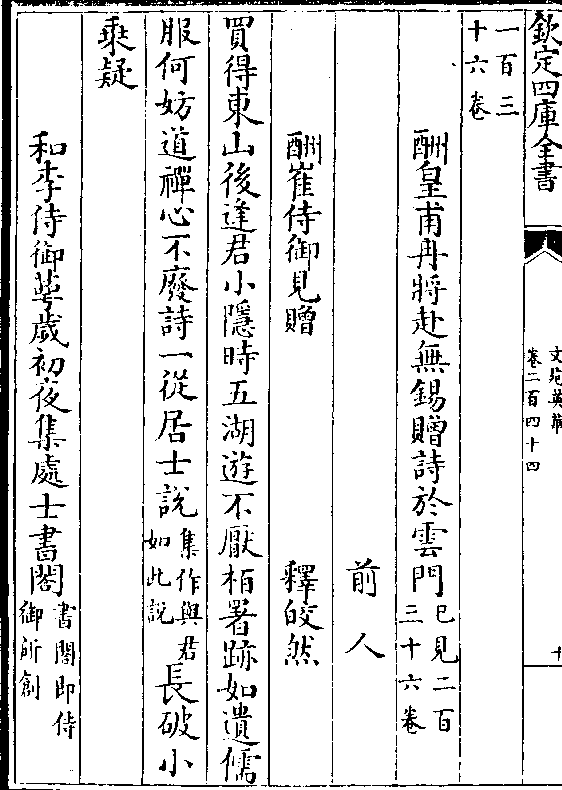 欽定四庫全書
文苑英華
卷二百四十四
十
一百三
十六卷
酬皇甫冉將赴無錫贈詩於雲門已見二百三十六卷
前人
酬崔侍御見贈 釋皎然
買得東山後逢君小隱時五湖遊不厭栢署跡如遺儒
服何妨道禪心不廢詩一從居士說集作與君如此說長破小
乗疑
和李侍御萼歲初夜集處士書閣書閣即侍御所創